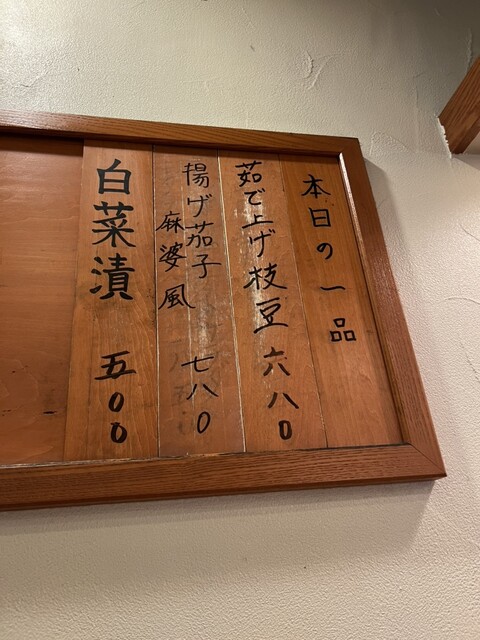 本日の一品
茹で上げ枝豆 六八〇
揚げ茄子
麻婆風 七八〇
白菜漬 五〇〇